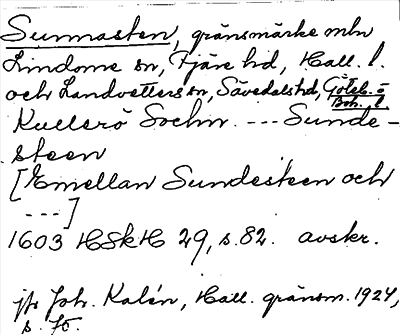 Sunnasten, gränsmärke mln
Lindome sn, Fjäre hd, Hall. l.
och Landvetters sn, Sävedals hd, Göteb. o
Boh. l.
Kullsrö Sochn. --- Sunde-
steen
[Emellan Sundesteen och
---]
1603 HSkH 29, s. 82. avskr.
jfr Joh. Kalén, Hall. gränsm. 1924,
s.